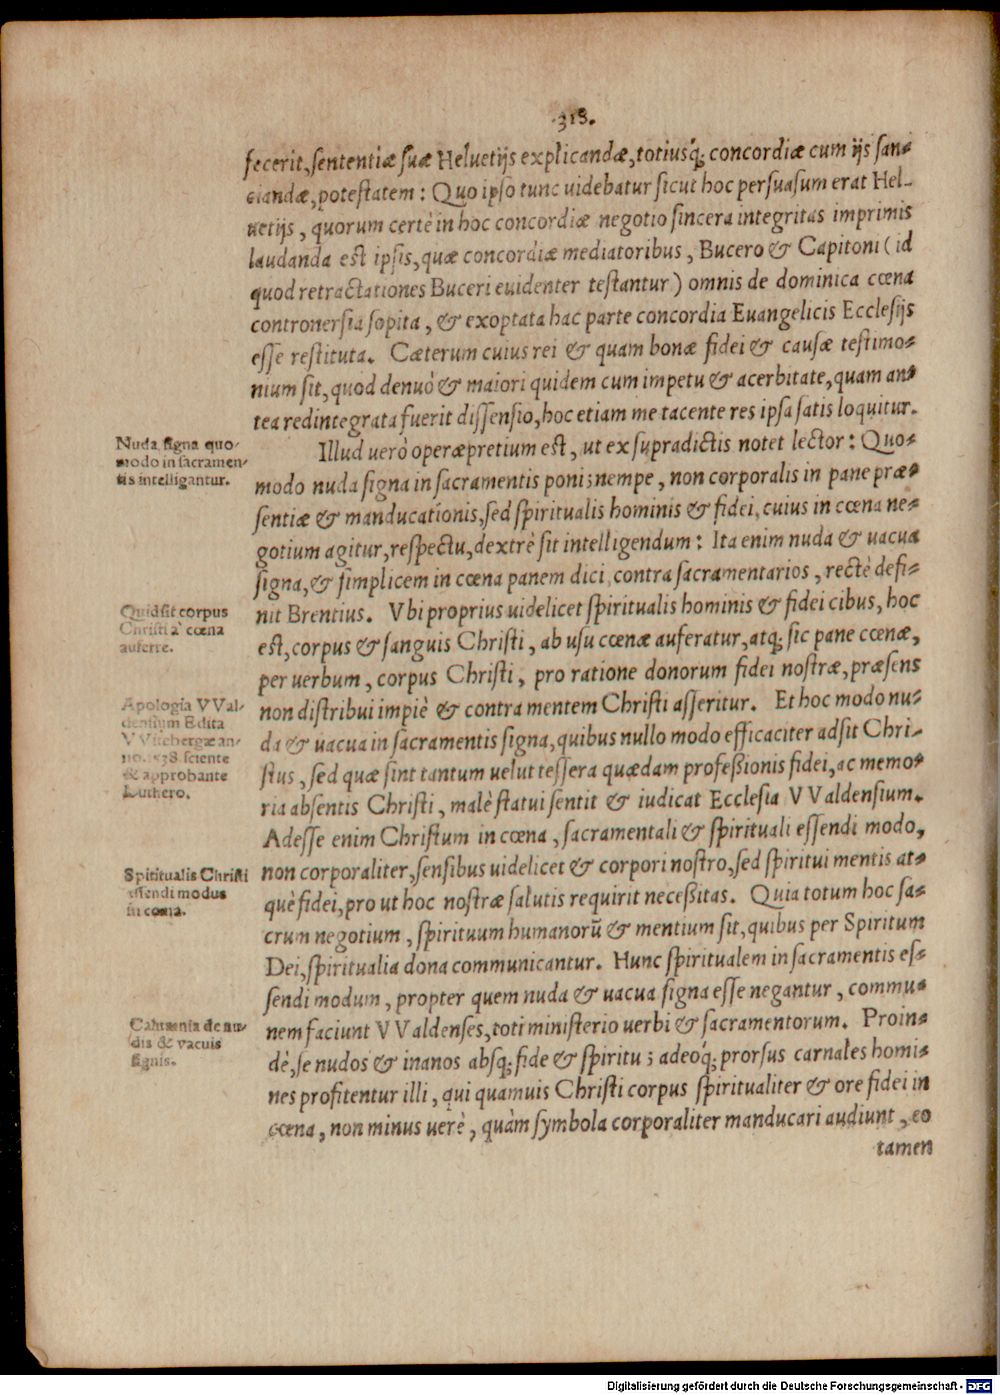 .318.
fecerit, sententiæ suæ Heluetijs explicandæ, totiusq́; concordiæ cum ijs san-
ciandæ, potestatem: Quo ipso tunc uidebatur sicut hoc persuasum erat Hel-
uetijs, quorum certè in hoc concordiæ negotio sincera integritas imprimis
laudanda est ipsis, quæ concordiæ mediatoribus, Bucero & Capitoni (id
quod retractationes Buceri euidenter testantur) omnis de dominica cœna
controuersia sopita, & exoptata hac parte concordia Euangelicis Ecclesijs
esse restituta. Cæterum cuius rei & quam bonæ fidei & causæ testimo-
nium sit, quod denuò & maiori quidem cum impetu & acerbitate, quam an-
tea redintegrata fuerit dissensio, hoc etiam me tacente res ipsa satis loquitur.
Nuda signa quo-
modo in sacramen-
tis intelligantur.
Illud uerò operæpretium est, ut ex supradictis notet lector: Quo-
modo nuda signa in sacramentis poni; nempe, non corporalis in pane præ-
sentiæ & manducationis, sed spiritualis hominis & fidei, cuius in cœna ne-
gotium agitur, respectu, dextrè sit intelligendum: Ita enim nuda & uacua
signa, & simplicem in cœna panem dici contra sacramentarios, rectè defi-
nit Brentius. Vbi proprius uidelicet spiritualis hominis & fidei cibus, hoc
Quid sit corpus
Christi à cœna
auferre.
est, corpus & sanguis Christi, ab usu cœnæ auferatur, atq; sic pane cœnæ,
per uerbum, corpus Christi, pro ratione donorum fidei nostræ, præsens
non distribui impiè & contra mentem Christi asseritur. Et hoc modo nu-
Apologia VVal-
densium Edita
VVitebergæ an-
no. 1538 sciente
& approbante
Luthero.
da & uacua in sacramentis signa, quibus nullo modo efficaciter adsit Chri-
stus, sed quæ sint tantum uelut tessera quædam professionis fidei, ac memo-
ria absentis Christi, malè statui sentit & iudicat Ecclesia VValdensium.
Adesse enim Christum in cœna, sacramentali & spirituali essendi modo,
non corporaliter, sensibus uidelicet & corpori nostro, sed spiritui mentis at-
Spiritualis Christi
essendi modus
in cœna.
què fidei, pro ut hoc nostræ salutis requirit necessitas. Quia totum hoc sa-
crum negotium, spirituum humanorũ & mentium sit, quibus per Spiritum
Dei, spiritualia dona communicantur. Hunc spiritualem in sacramentis es-
sendi modum, propter quem nuda & uacua signa esse negantur, commu-
nem faciunt VValdenses, toti ministerio uerbi & sacramentorum. Proin-
Calumnia de nu-
dis & vacuis
signis.
dè, se nudos & inanos absq; fide & spiritu; adeoq́; prorsus carnales homi-
nes profitentur illi, qui quamuis Christi corpus spiritualiter & ore fidei in
cœna, non minus uerè, quàm symbola corporaliter manducari audiunt, eo
tamen
Digitalisierung gefördert durch die Deutsche Forschungsgemeinschaft - DFG